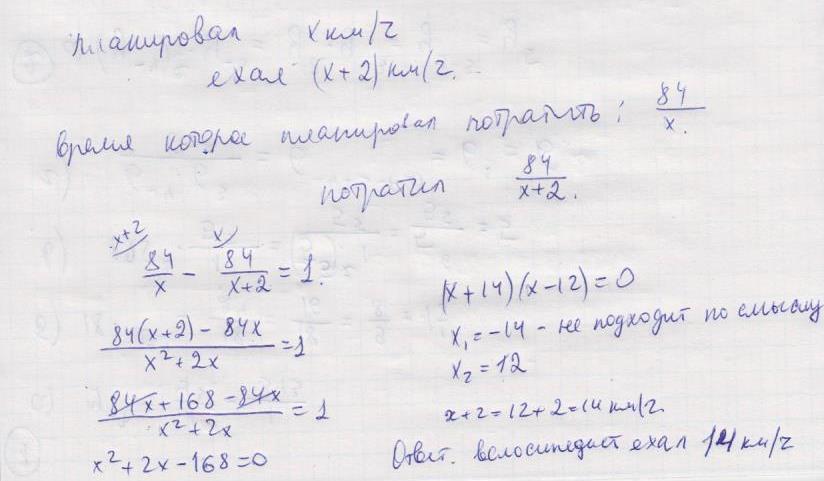 планировал x км/ч
ехал (x+2) км/ч.
время которое планировал потратить: 84/x.
потратил 84/x+2.
x+2 x
84/x - 84/x+2 = 1.
84(x+2) - 84x/x²+2x = 1
84x + 168 - 84x/x²+2x = 1
x²+2x-168=0
(x+14)(x-12)=0
x₁=-14 - не подходит по смыслу
x₂=12
x+2=12+2=14 км/ч.
Ответ. велосипедист ехал 14 км/ч